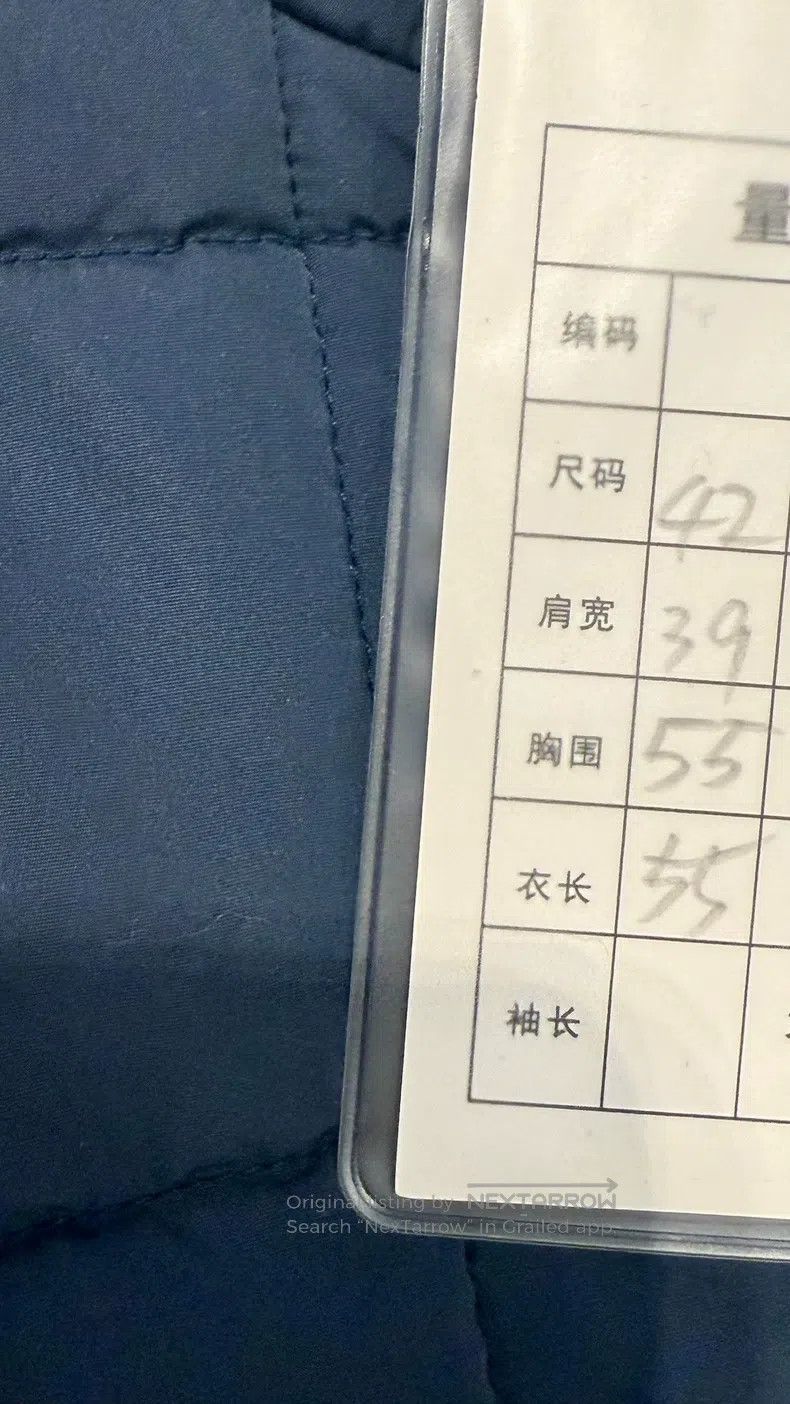 量
编码
尺码 42
肩宽 39
胸围 55
衣长 55
袖长
Original listing by NEXTARROW
Search "NexTarrow" in Grailed app.